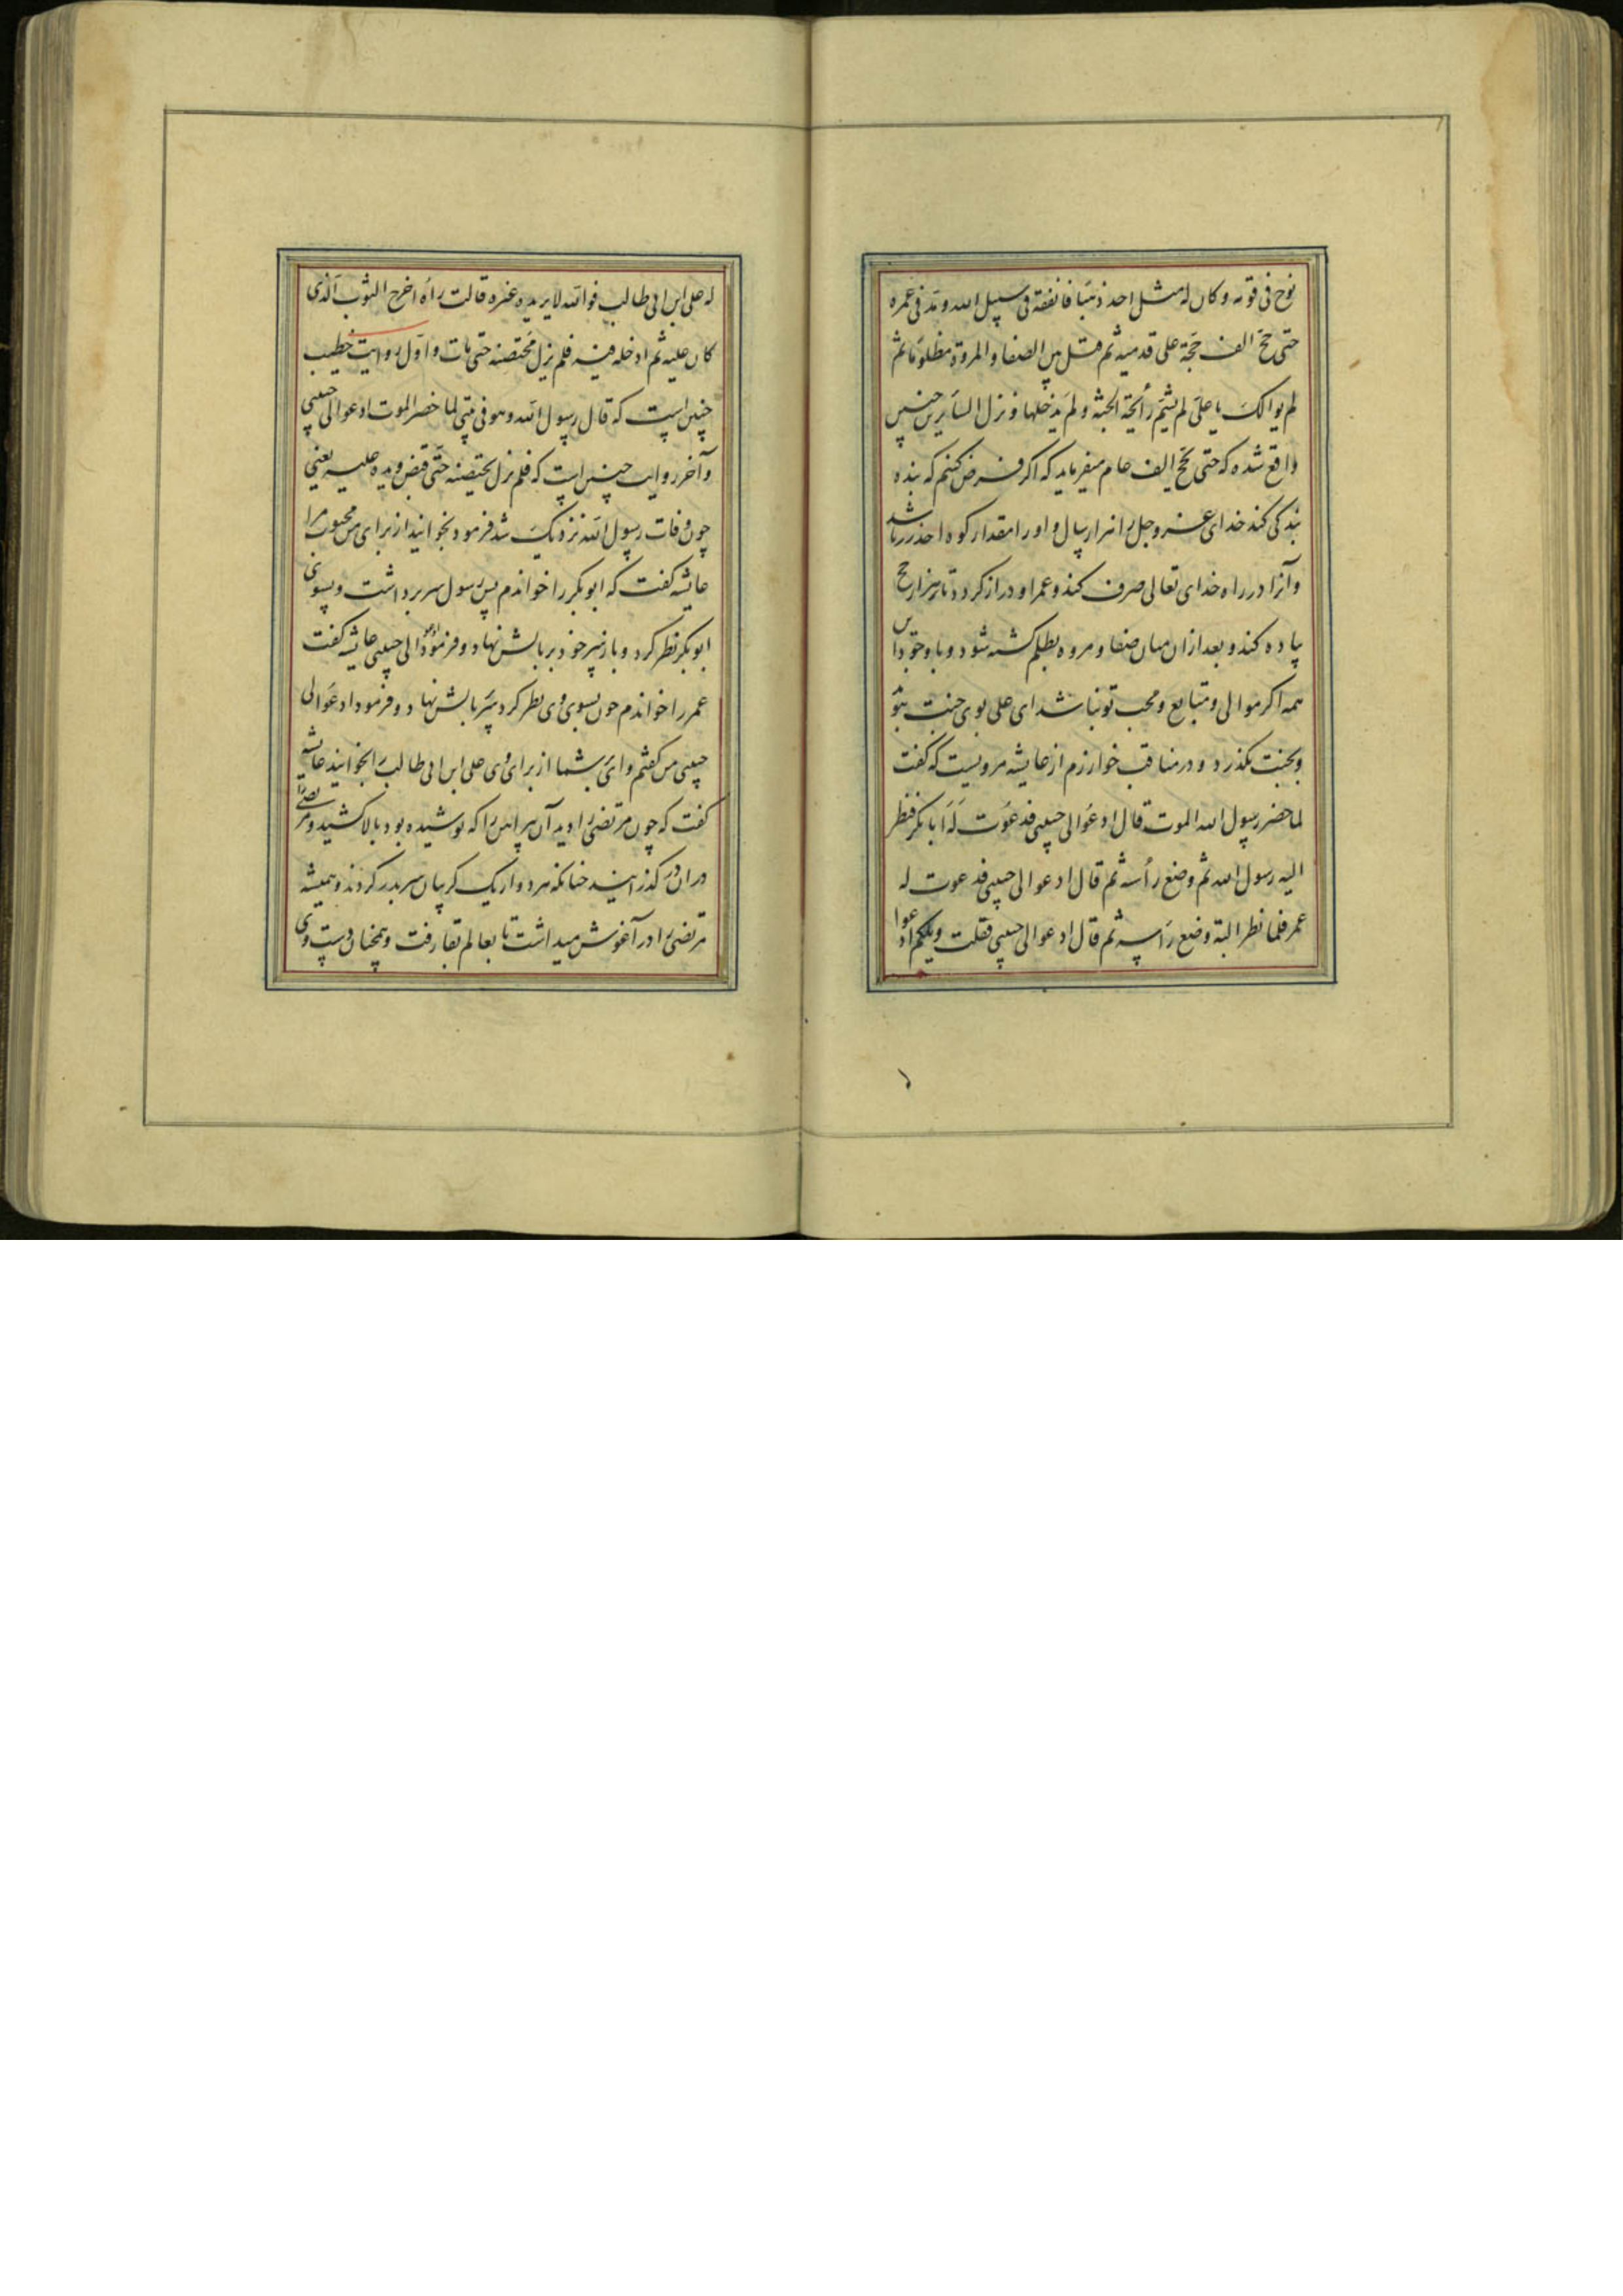 نوح فی قومه و کان له مثل احد ذهبا فانفقه فی سبیل الله و مد فی عمره
حتی حج الف حجة علی قدمیه ثم قتل بین الصفا و المروة مظلوما ثم
لم یوالک یا علی لم یشم رائحة الجنة و لم یدخلها و نزل السایرین چنین
واقع شده که حتی یحج الف عام میفرماید که اکر فرض کنیم که بنده
بندکی کند خدای عز وجل را هزار سال و او را مقدار کوه احد زر باشد
و آنرا در راه خدای تعالی صرف کند و عمر او دراز کردد تا هزار حج
پیاده کند و بعد ازان میان صفا و مروه بظلم کشته شود و با وجود این
همه اکر موالی و متابع و محب تو نباشد ای علی بوی جنت نشنود
و بجنت نکذرد و در مناقب خوارزم از عایشه مرویست که کفت
لما حضر رسول الله الموت قال ادعوا لی حبیبی فدعوت له ابا بکر فنظر
الیه رسول الله ثم وضع رأسه ثم قال ادعوا لی حبیبی فدعوت له
عمر فلما نظر الیه وضع رأسه ثم قال ادعوا لی حبیبی فقلت ویلکم ادعوا
له علی ابن ابی طالب فوالله لا یریده غیره قالت راه اخرج الثوب الذی
کان علیه ثم ادخله فیه فلم یزل محتضنه حتی مات و اول روایت خطیب
چنین است که قال رسول الله و هو فی بیتی لما حضر الموت ادعوا لی حبیبی
و آخر روایت چنین است که فلم یزل یحتضنه حتی قبض و یده علیه یعنی
چون وفات رسول الله نزدیک شد فرمود بخوانید از برای من محبوب مرا
عایشه کفت که ابوبکر را خواندم پس رسول سر برداشت و بسوی
ابوبکر نظر کرد و باز سر خود بر بالش نهاد و فرمود ادعوا لی حبیبی عایشه کفت
عمر را خواندم چون بسوی وی نظر کرد سر ببالش نهاد و فرمود ادعوا لی
حبیبی من کفتم وای بشما از برای وی علی ابن ابی طالب را بخوانید عایشه
کفت که چون مرتضی را دید آن پیراهن را که پوشیده بود بالا کشید و مرتضی را
در آن در کذرانید چنانکه هر دو از یک کریبان سر بدر کردند و همیشه
مرتضی را در آغوش میداشت تا بعالم بقا رفت و همچنان دست وی